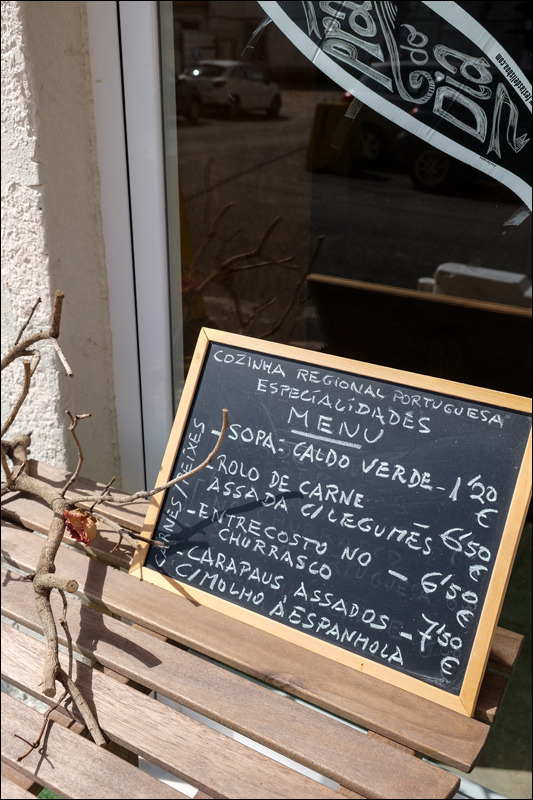 Prato
do
Dia
COZINHA REGIONAL PORTUGUESA
ESPECIALIDADES
MENU
CARNES/PEIXES
- SOPA - CALDO VERDE - 1'20 €
- ROLO DE CARNE
ASSADA C/LEGUMES - 6'50 €
- ENTRECOSTO NO - 6'50 €
CHURRASCO
- CARAPAUS ASSADOS - 7'50 €
C/MOLHO À ESPANHOLA